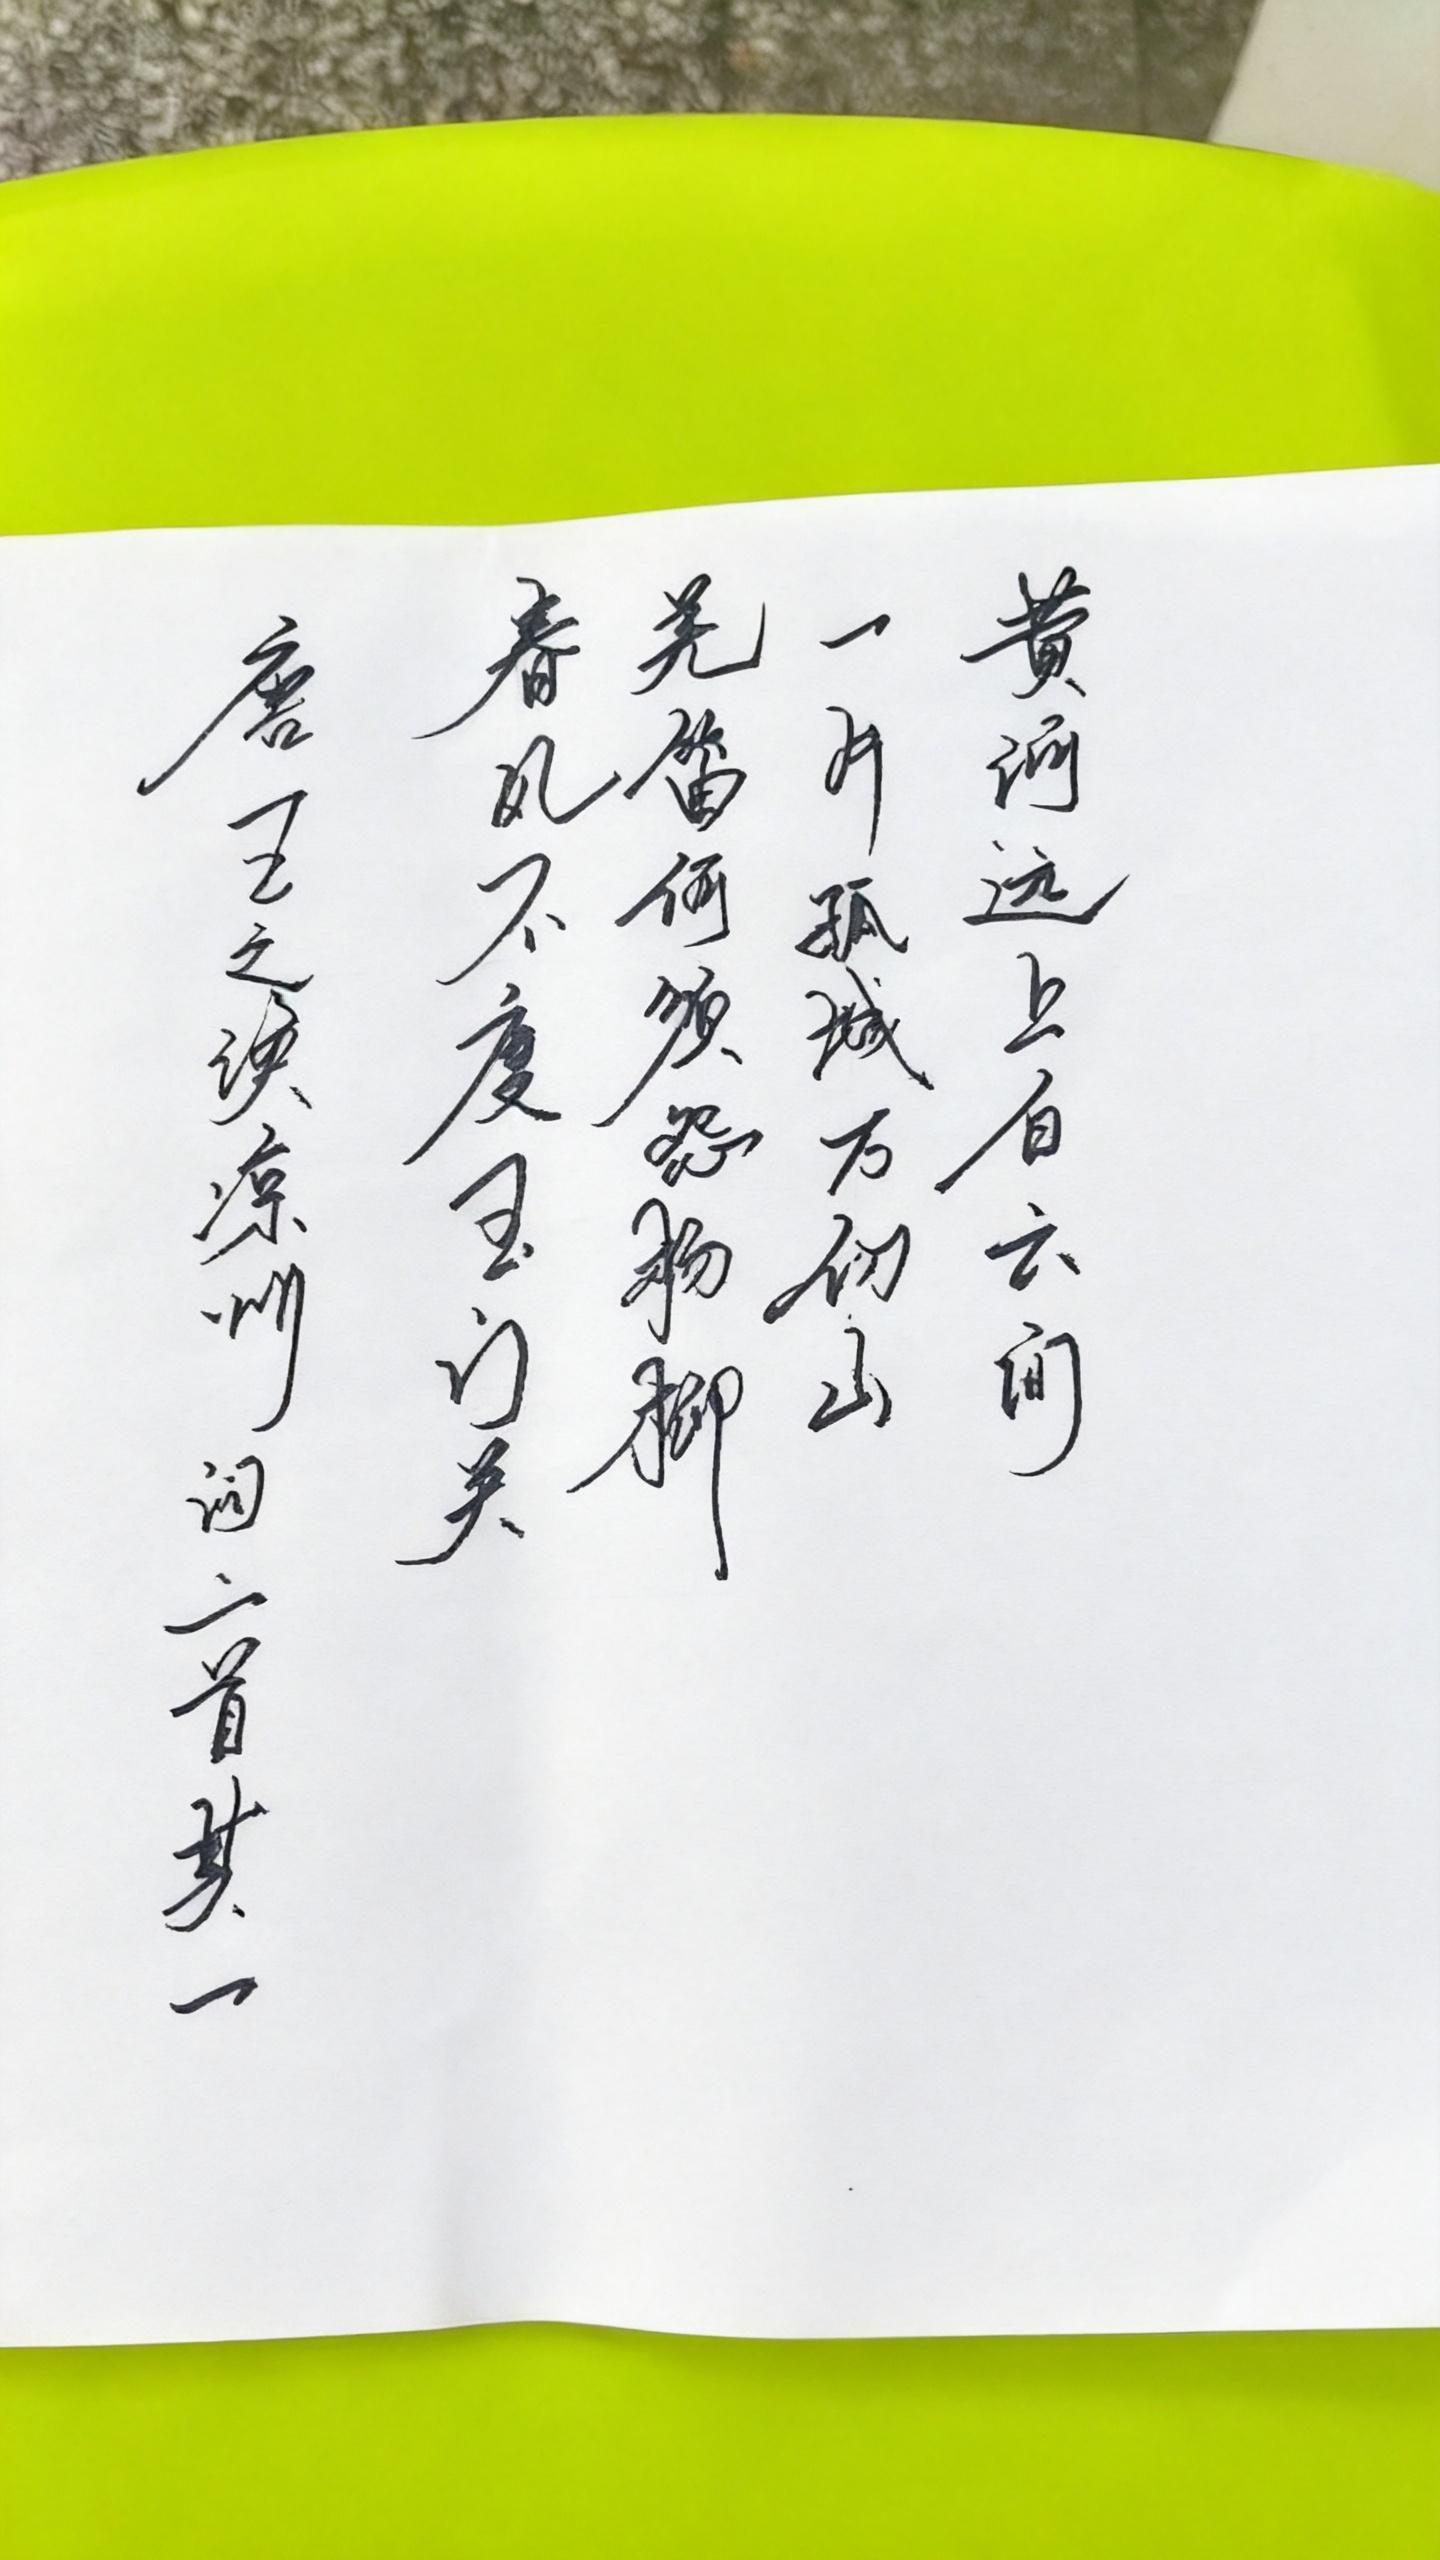 黄河远上白云间
一片孤城万仞山
羌笛何须怨杨柳
春风不度玉门关
唐王之涣凉州词二首其一